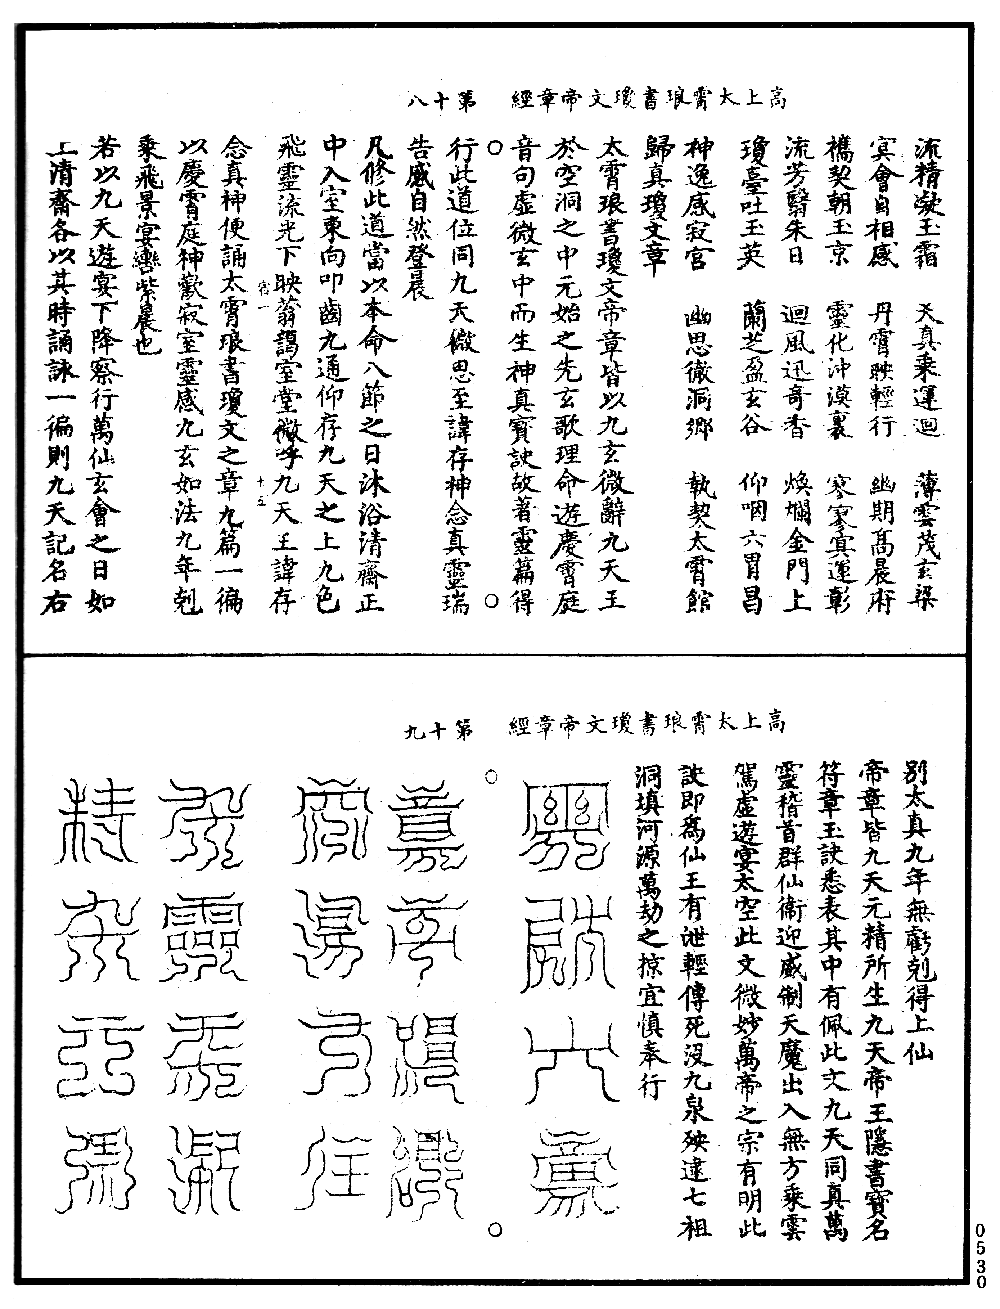 高上太霄琅書瓊文帝章經　第十八
流精凝玉霜　天真乘運迴　薄雲茂玄梁
冥會自相感　丹霄映輕行　幽期高晨府
攜契朝玉京　靈化沖漠裏　寥寥冥運彰
流芳翳朱日　迴風迅奇香　煥爛金門上
瓊臺吐玉英　蘭芝盈玄谷　仰咽六胃昌
神逸感寂宮　幽思徹洞鄉　執契太霄館
歸真瓊文章
太霄琅書瓊文帝章皆以九玄微辭九天王
於空洞之中元始之先玄歌理命遊慶霄庭
音句虛微玄中而生神真寶訣故著靈篇得
行此道位同九天微思至諱存神念真靈瑞
告感自然登晨
凡修此道當以本命八節之日沐浴清齋正
中入室東向叩齒九通仰存九天之上九色
飛靈流光下映蓊靄室堂微呼九天王諱存
宿一　十五
念真神便誦太霄琅書瓊文之章九篇一徧
以慶霄庭神歡寂室靈感九玄如法九年剋
乘飛景宴轡紫晨也
若以九天遊宴下降察行萬仙玄會之日如
上清齋各以其時誦詠一徧則九天記名右
高上太霄琅書瓊文帝章經　第十九
別太真九年無虧剋得上仙
帝章皆九天元精所生九天帝王隱書寶名
符章玉訣悉表其中有佩此文九天同真萬
靈稽首群仙衞迎威制天魔出入無方乘雲
駕虛遊宴太空此文微妙萬帝之宗有明此
訣即為仙王有泄輕傳死没九泉殃逮七祖
洞填河源萬劫之掠宜慎奉行
0530